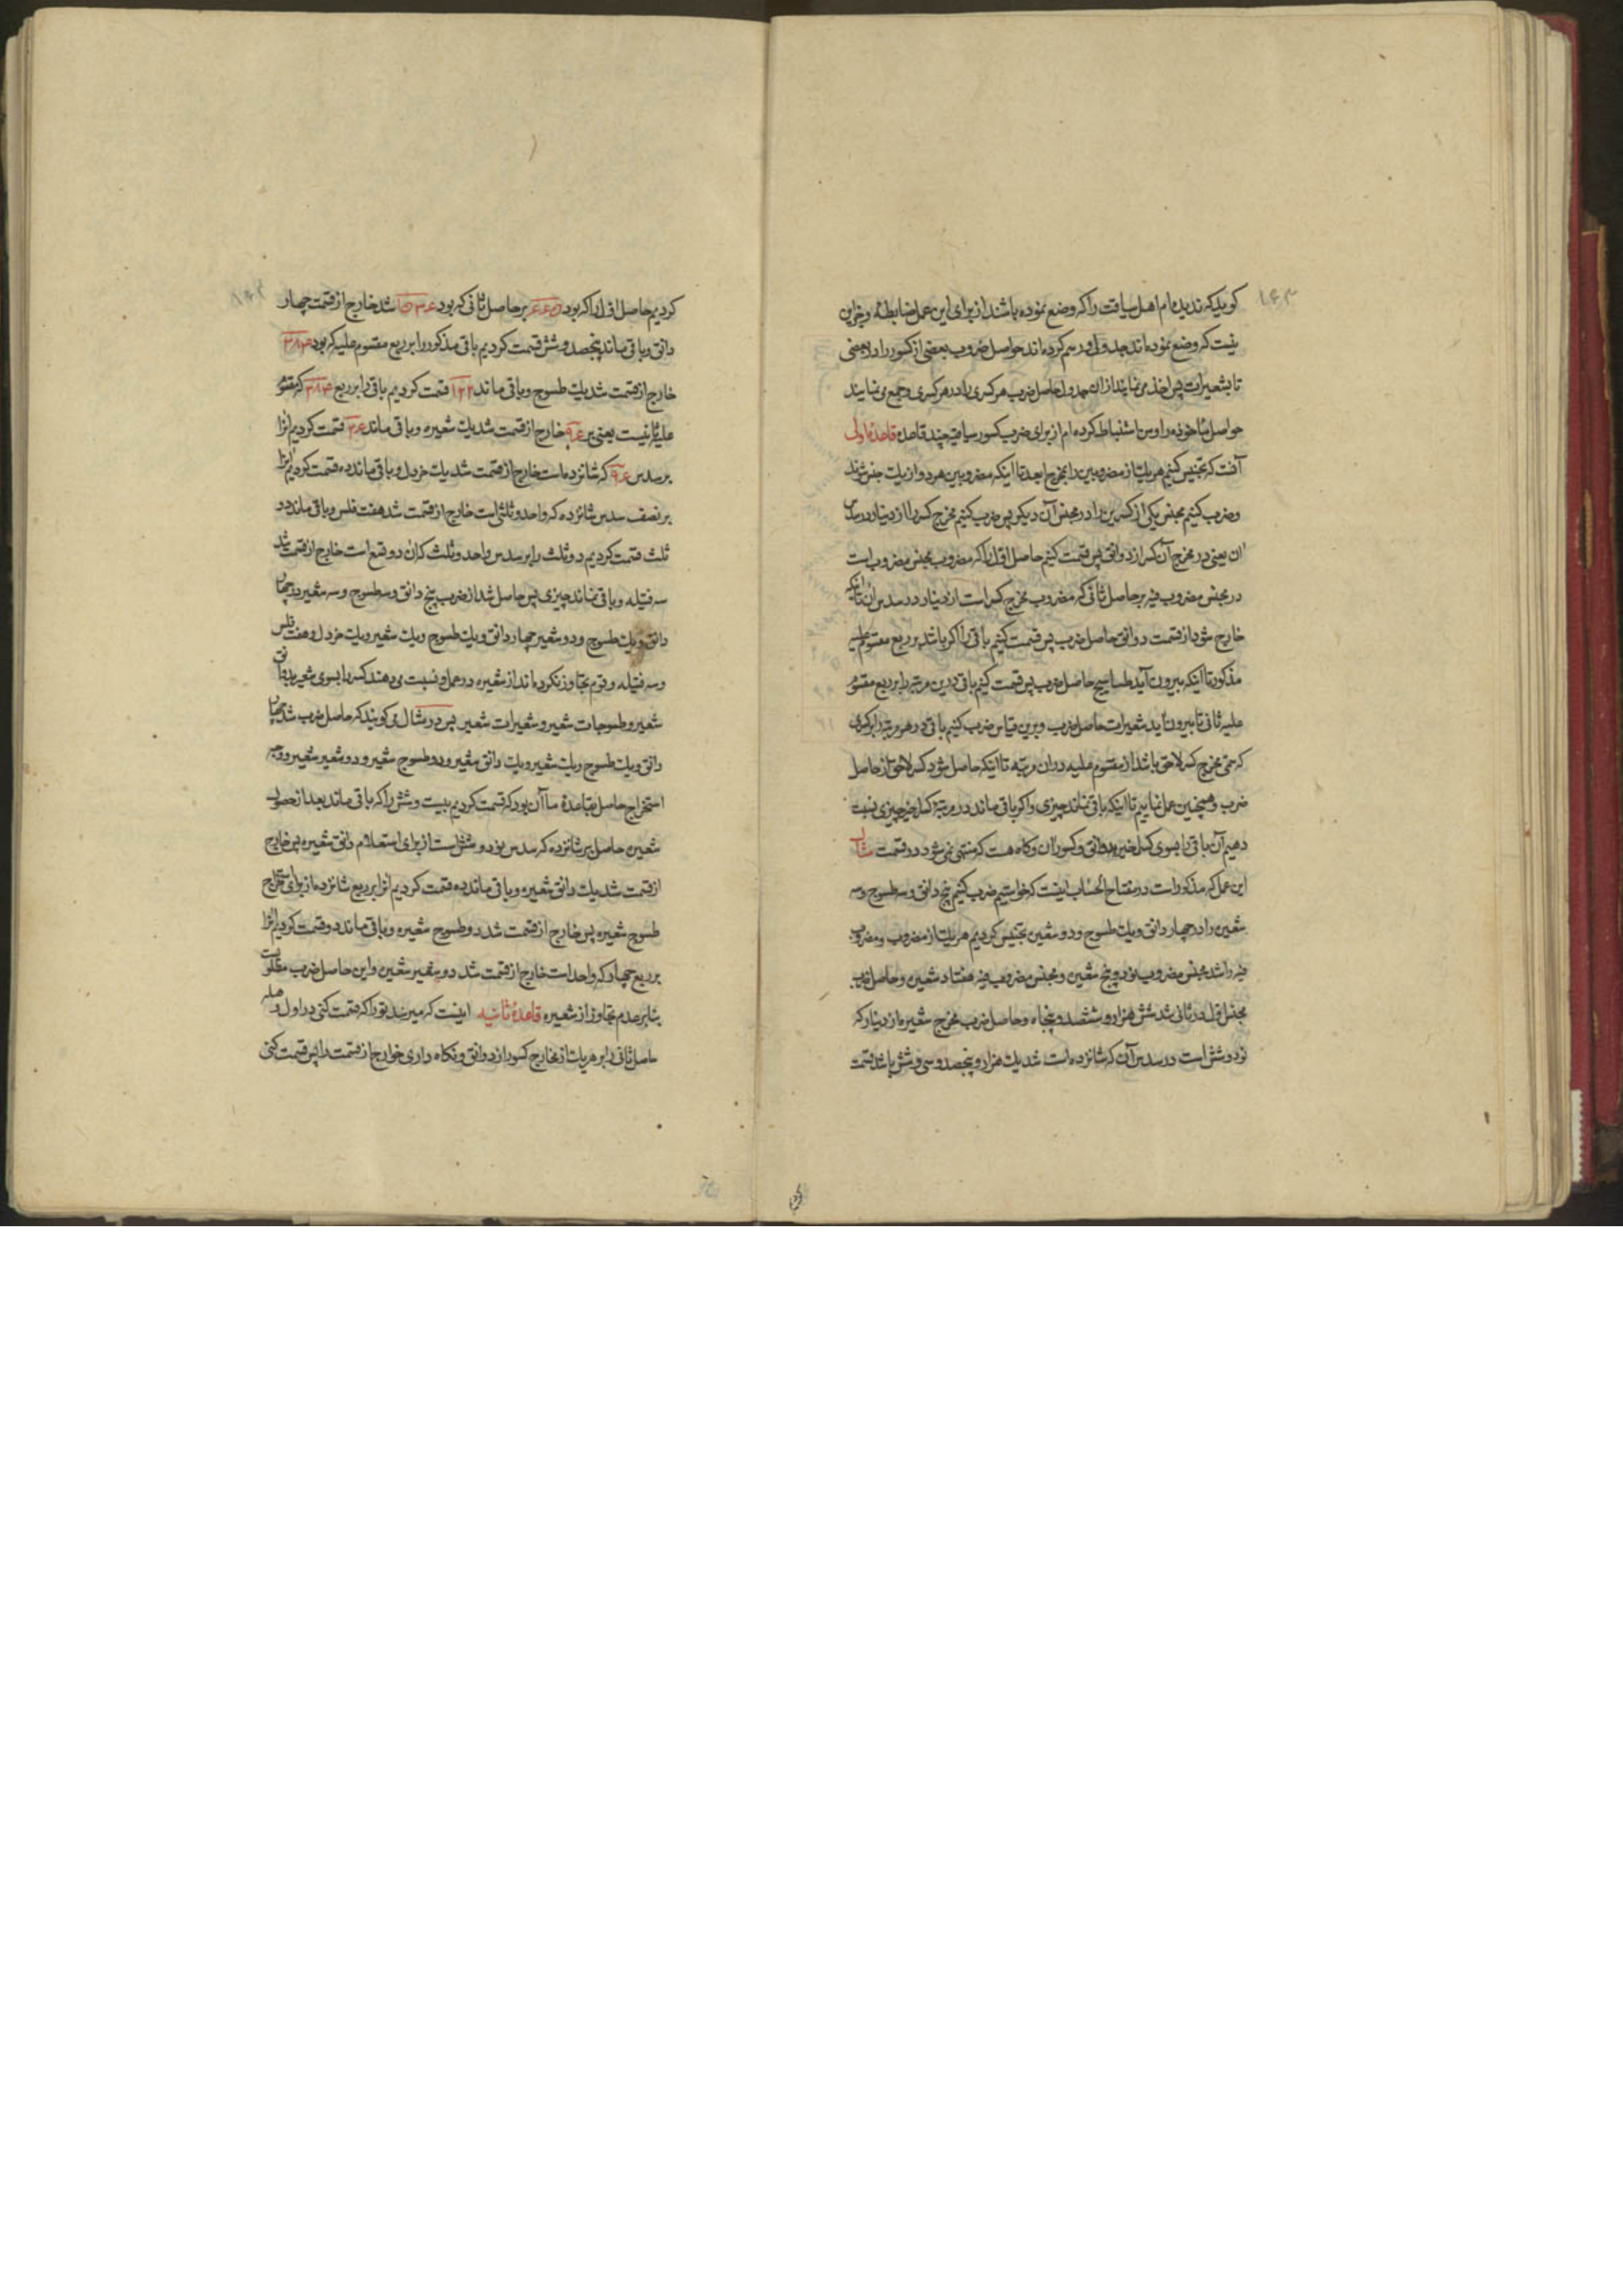 ۱۶۳
کوید که ندیده‌ام اهل سیاقت را که وضع نموده باشند از برای این عمل ضابطهٔ و جز این
نیست که وضع نموده‌اند جدولی و رسم کرده‌اند حواصل ضروب بعضی از کسور را در بعضی
تا بشعیرات پس اخذ می نمایند از ان جدول حاصل ضرب هر کسری را در هر کسری و جمع می نمایند
حواصل ماخوذه را و من استنباط کرده‌ام از برای ضرب کسور سیاقیه چند قاعده قاعدهٔ اولی
آنست که تجنیس کنیم هر یک از مضروبین را بمخرج ابعد تا اینکه مضروبین هر دو از یک جنس شوند
و ضرب کنیم مجنس یکی از کسرین را در مجنس آن دیگر پس ضرب کنیم مخرج کسر را از دینار در سدس
ان یعنی در مخرج آن کسر از دوانق پس قسمت کنیم حاصل اول را که مضروب مجنس مضروب است
در مجنس مضروب فیه بر حاصل ثانی که مضروب مخرج کسر است از دینار در سدس ان تا اینکه
خارج شود از قسمت دوانق حاصل ضرب پس قسمت کنیم باقی را اکر باشد بر ربع مقسوم علیه
مذکور تا اینکه بیرون آید طساسیج حاصل ضرب پس قسمت کنیم باقی درین مرتبه را بر ربع مقسوم
علیه ثانی تا بیرون آید شعیرات حاصل ضرب و برین قیاس ضرب کنیم باقی در هر مرتبه را بر کسری
که سمی مخرج کسر لاحق باشد از مقسوم علیه در ان مرتبه تا اینکه حاصل شود کسر لاحق از حاصل
ضرب و همچنین عمل نماییم تا اینکه باقی نماند چیزی و اکر باقی ماند در مرتبهٔ کسل خیر چیزی نسبت
دهیم آن باقی را بسوی کسل خیر بدوانق و کسور ان و کاه هست که منتهی نمی شود در قسمت مثال
این عمل که مذکور است در مفتاح الحساب اینست که خواستیم ضرب کنیم پنج دانق و سه طسوج و سه
شعیره را در چهار دانق و یک طسوج و دو شعیره تجنیس کردیم هر یک از مضروب و مضروب
فیه را شد مجنس مضروب نود و پنج شعیره و مجنس مضروب فیه هفتاد شعیره و حاصل ضرب
مجنس اول در ثانی شد شش هزار و ششصد و پنجاه و حاصل ضرب مخرج شعیره از دینار که
نود و شش است در سدس آن که شانزده است شد یک هزار و پنجصد و سی و شش باشد قسمت
کردیم حاصل اول را که بود ۶۶۵۰ بر حاصل ثانی که بود ۱۵۳۶ شد خارج از قسمت چهار
دانق و باقی ماند پنجصد و شش قسمت کردیم باقی مذکور را بر ربع مقسوم علیه که بود ۳۸۴
خارج از قسمت شد یک طسوج و باقی ماند ۱۲۲ قسمت کردیم باقی را بر ربع ۳۸۴ که مقسوم
علیه ثانیست یعنی بر ۹۶ خارج از قسمت شد یک شعیره و باقی ماند ۲۶ قسمت کردیم انرا
بر سدس ۹۶ که شانزده است خارج از قسمت شد یک خردل و باقی ماند ده قسمت کردیم انرا
بر نصف سدس شانزده که واحد و ثلثی است خارج از قسمت شد هفت فلس و باقی ماند دو
ثلث قسمت کردیم دو ثلث را بر سدس واحد و ثلث که ان دو تسع است خارج از قسمت شد
سه فتیله و باقی نماند چیزی پس حاصل شد از ضرب پنج دانق و سه طسوج و سه شعیر در چهار
دانق و یک طسوج و دو شعیر چهار دانق و یک طسوج و یک شعیر و یک خردل و هفت فلس
و سه فتیله و قوم تجاوز نکرده‌اند از شعیره در عمل و نسبت می دهند کسر را بسوی شعیر بدوانق
شعیر و طسوجات شعیر و شعیرات شعیر پس در مثال می کویند که حاصل ضرب شد چهار
دانق و یک طسوج و یک شعیر و یک دانق شعیر و دو طسوج شعیر و دو شعیر شعیر و وجه
استخراج حاصل بقاعدهٔ ما آن بود که قسمت کردیم بیست و شش را که باقی ماند بعد از حصول
شعیره حاصل بر شانزده که سدس نود و شش است از برای استعلام دانق شعیره پس خارج
از قسمت شد یک دانق شعیره و باقی ماند ده قسمت کردیم انرا بر ربع شانزده از برای استخراج
طسوج شعیره پس خارج از قسمت شد دو طسوج شعیره و باقی ماند دو قسمت کردیم انرا
بر ربع چهار که واحد است خارج از قسمت شد دو شعیر شعیره و این حاصل ضرب مطلوبست
بنابر عدم تجاوز از شعیره قاعدهٔ ثانیه اینست که میرسد تو را که قسمت کنی در اول وهله
حاصل ثانی را بر هر یک از مخارج کسور از دوانق و نکاه داری خوارج از قسمت را پس قسمت کنی